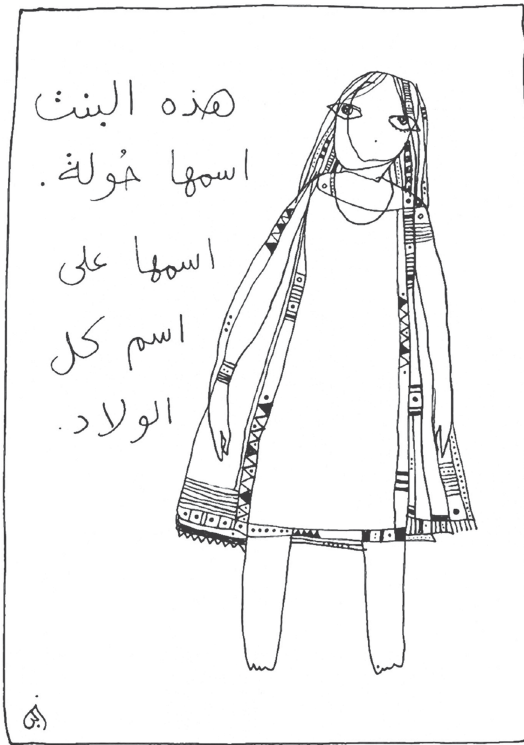 هذه البنت
اسمها خُولة.
اسمها على
اسم كل
الولاد.